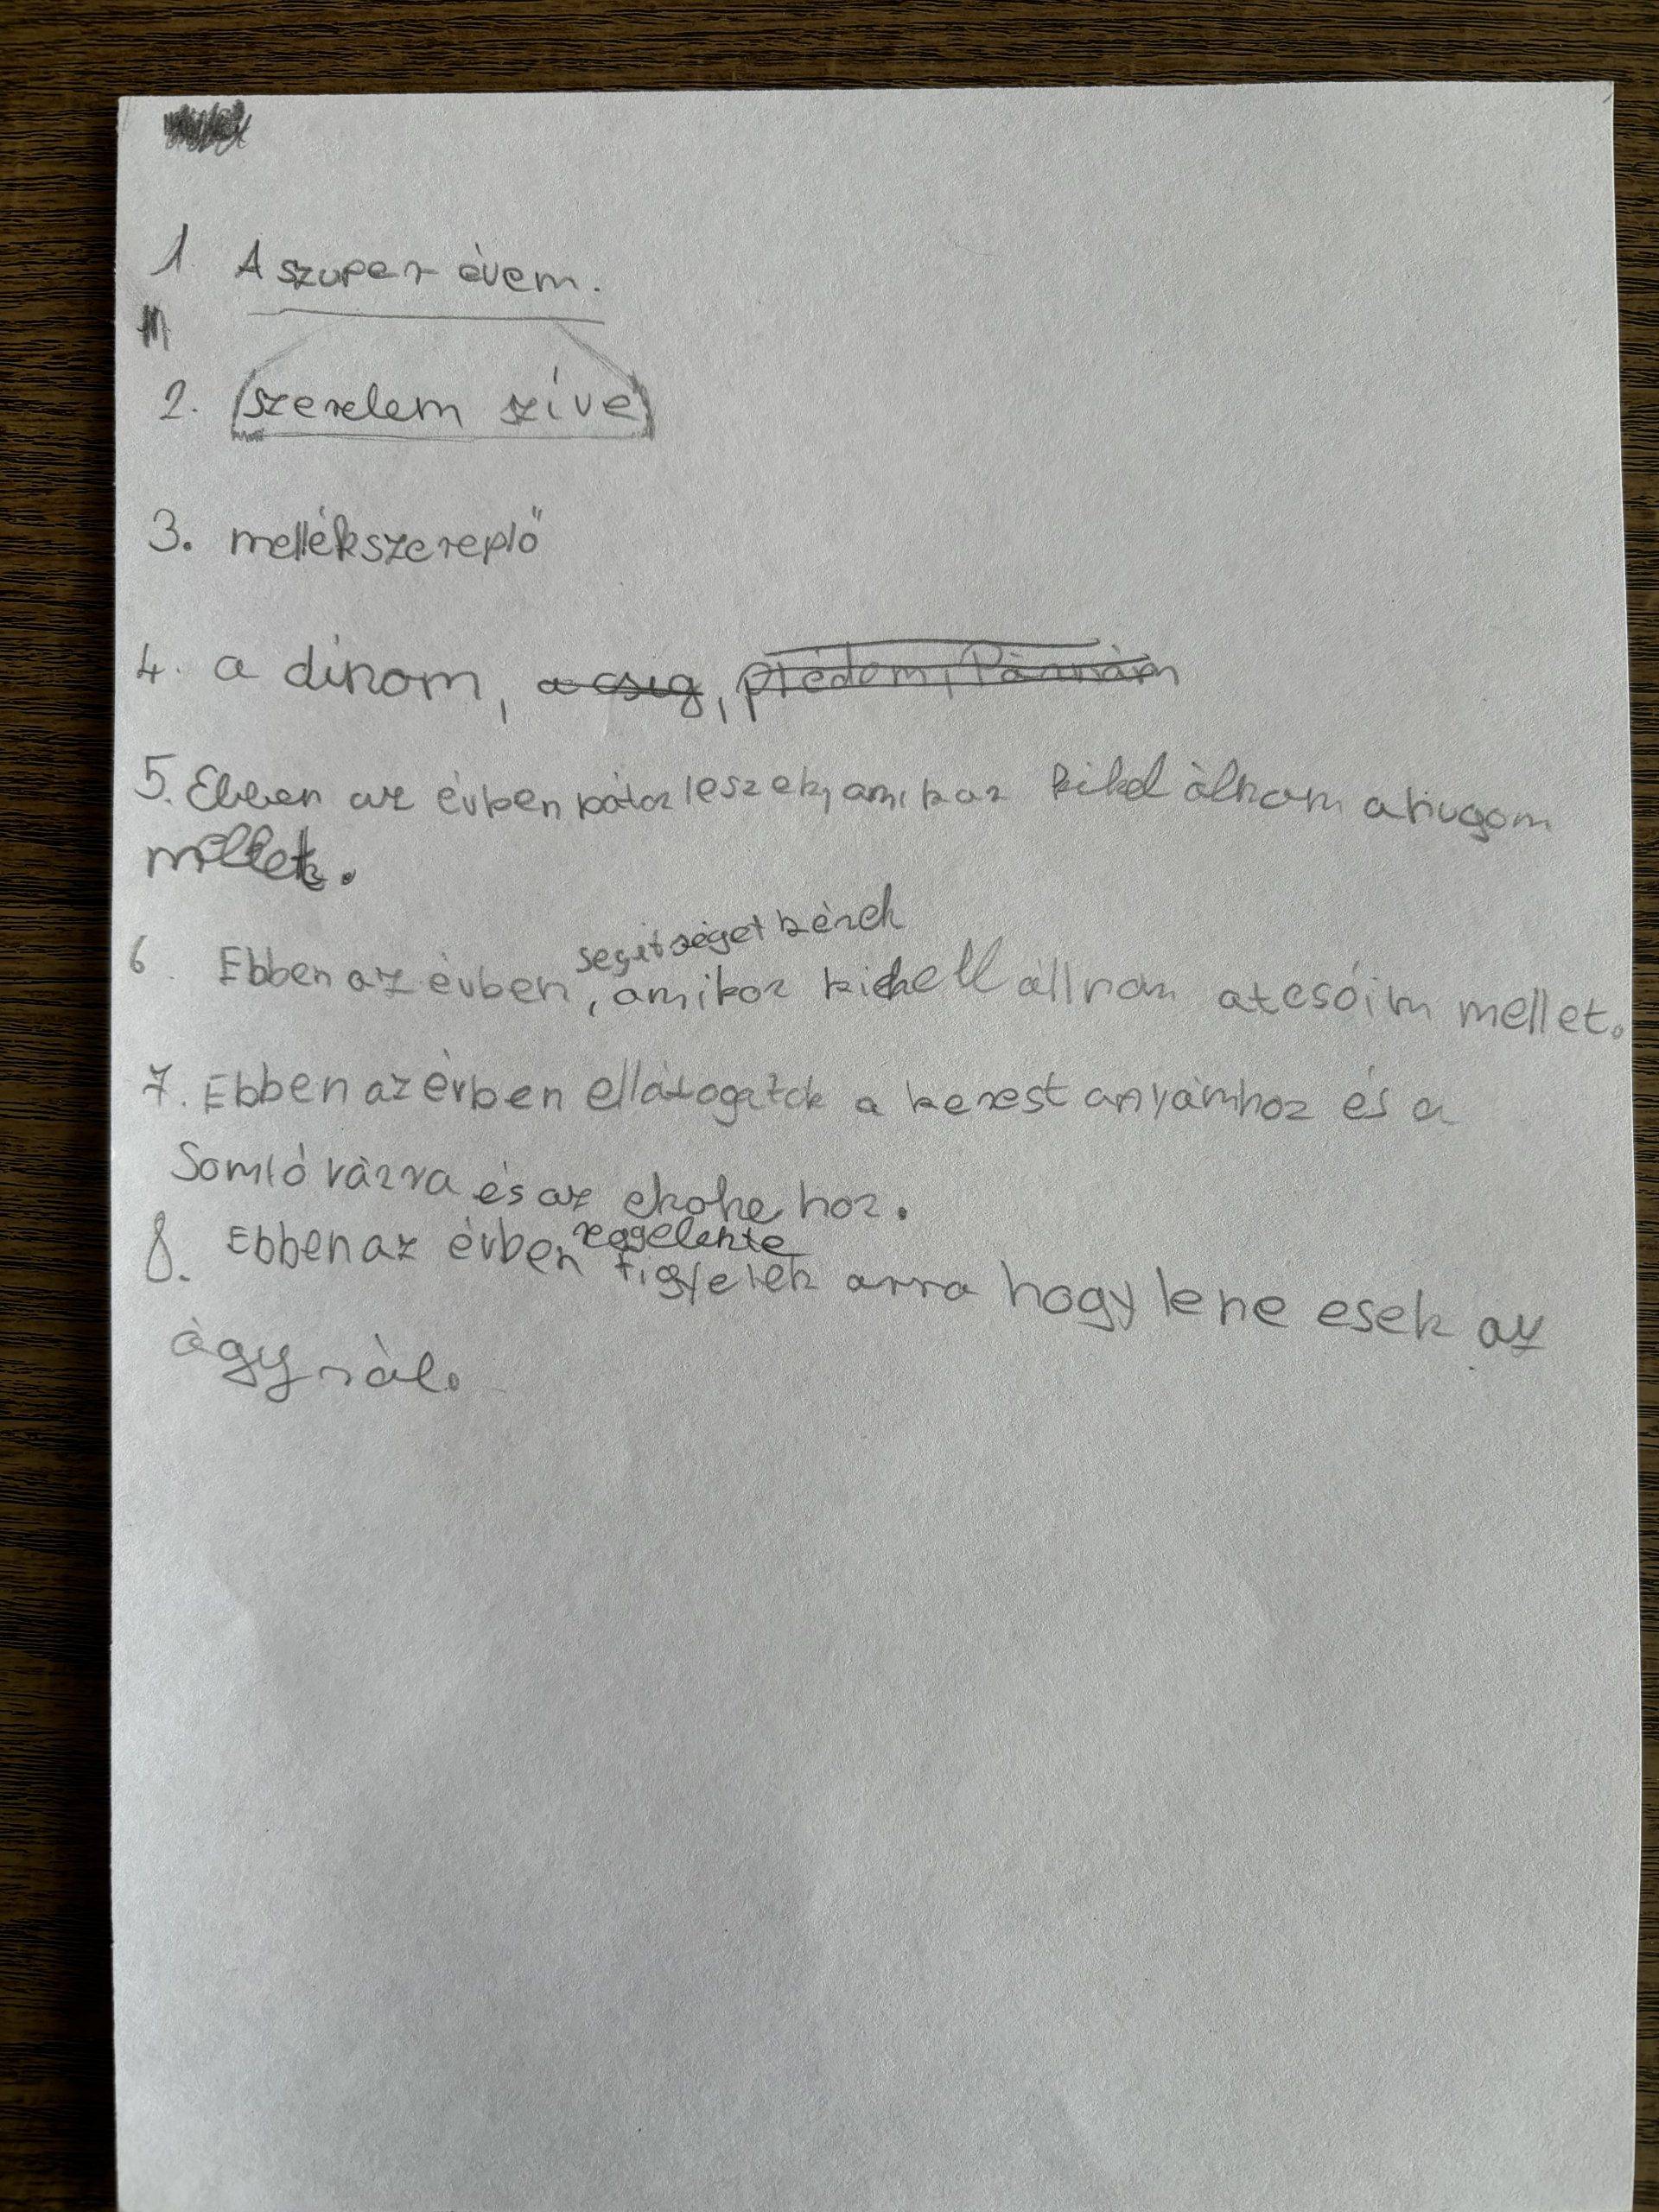 1. A szuper évem.
2. szerelem szíve
3. mellékszereplő
4. a dínom, a csig, plédem, Párnám
5. Ebben az évben bátor leszek, amikor kikel álnom ahugom
mellet.
segitséget kérek
6. Ebben az évben, amikor kikell állnom atesóim mellet.
7. Ebben az évben ellátogatok a kerest anyámhoz és a
Somló várra és az ekohe hoz.
reggelente
8. Ebben az évben figyelek arra hogy lene esek az
ágy ról.